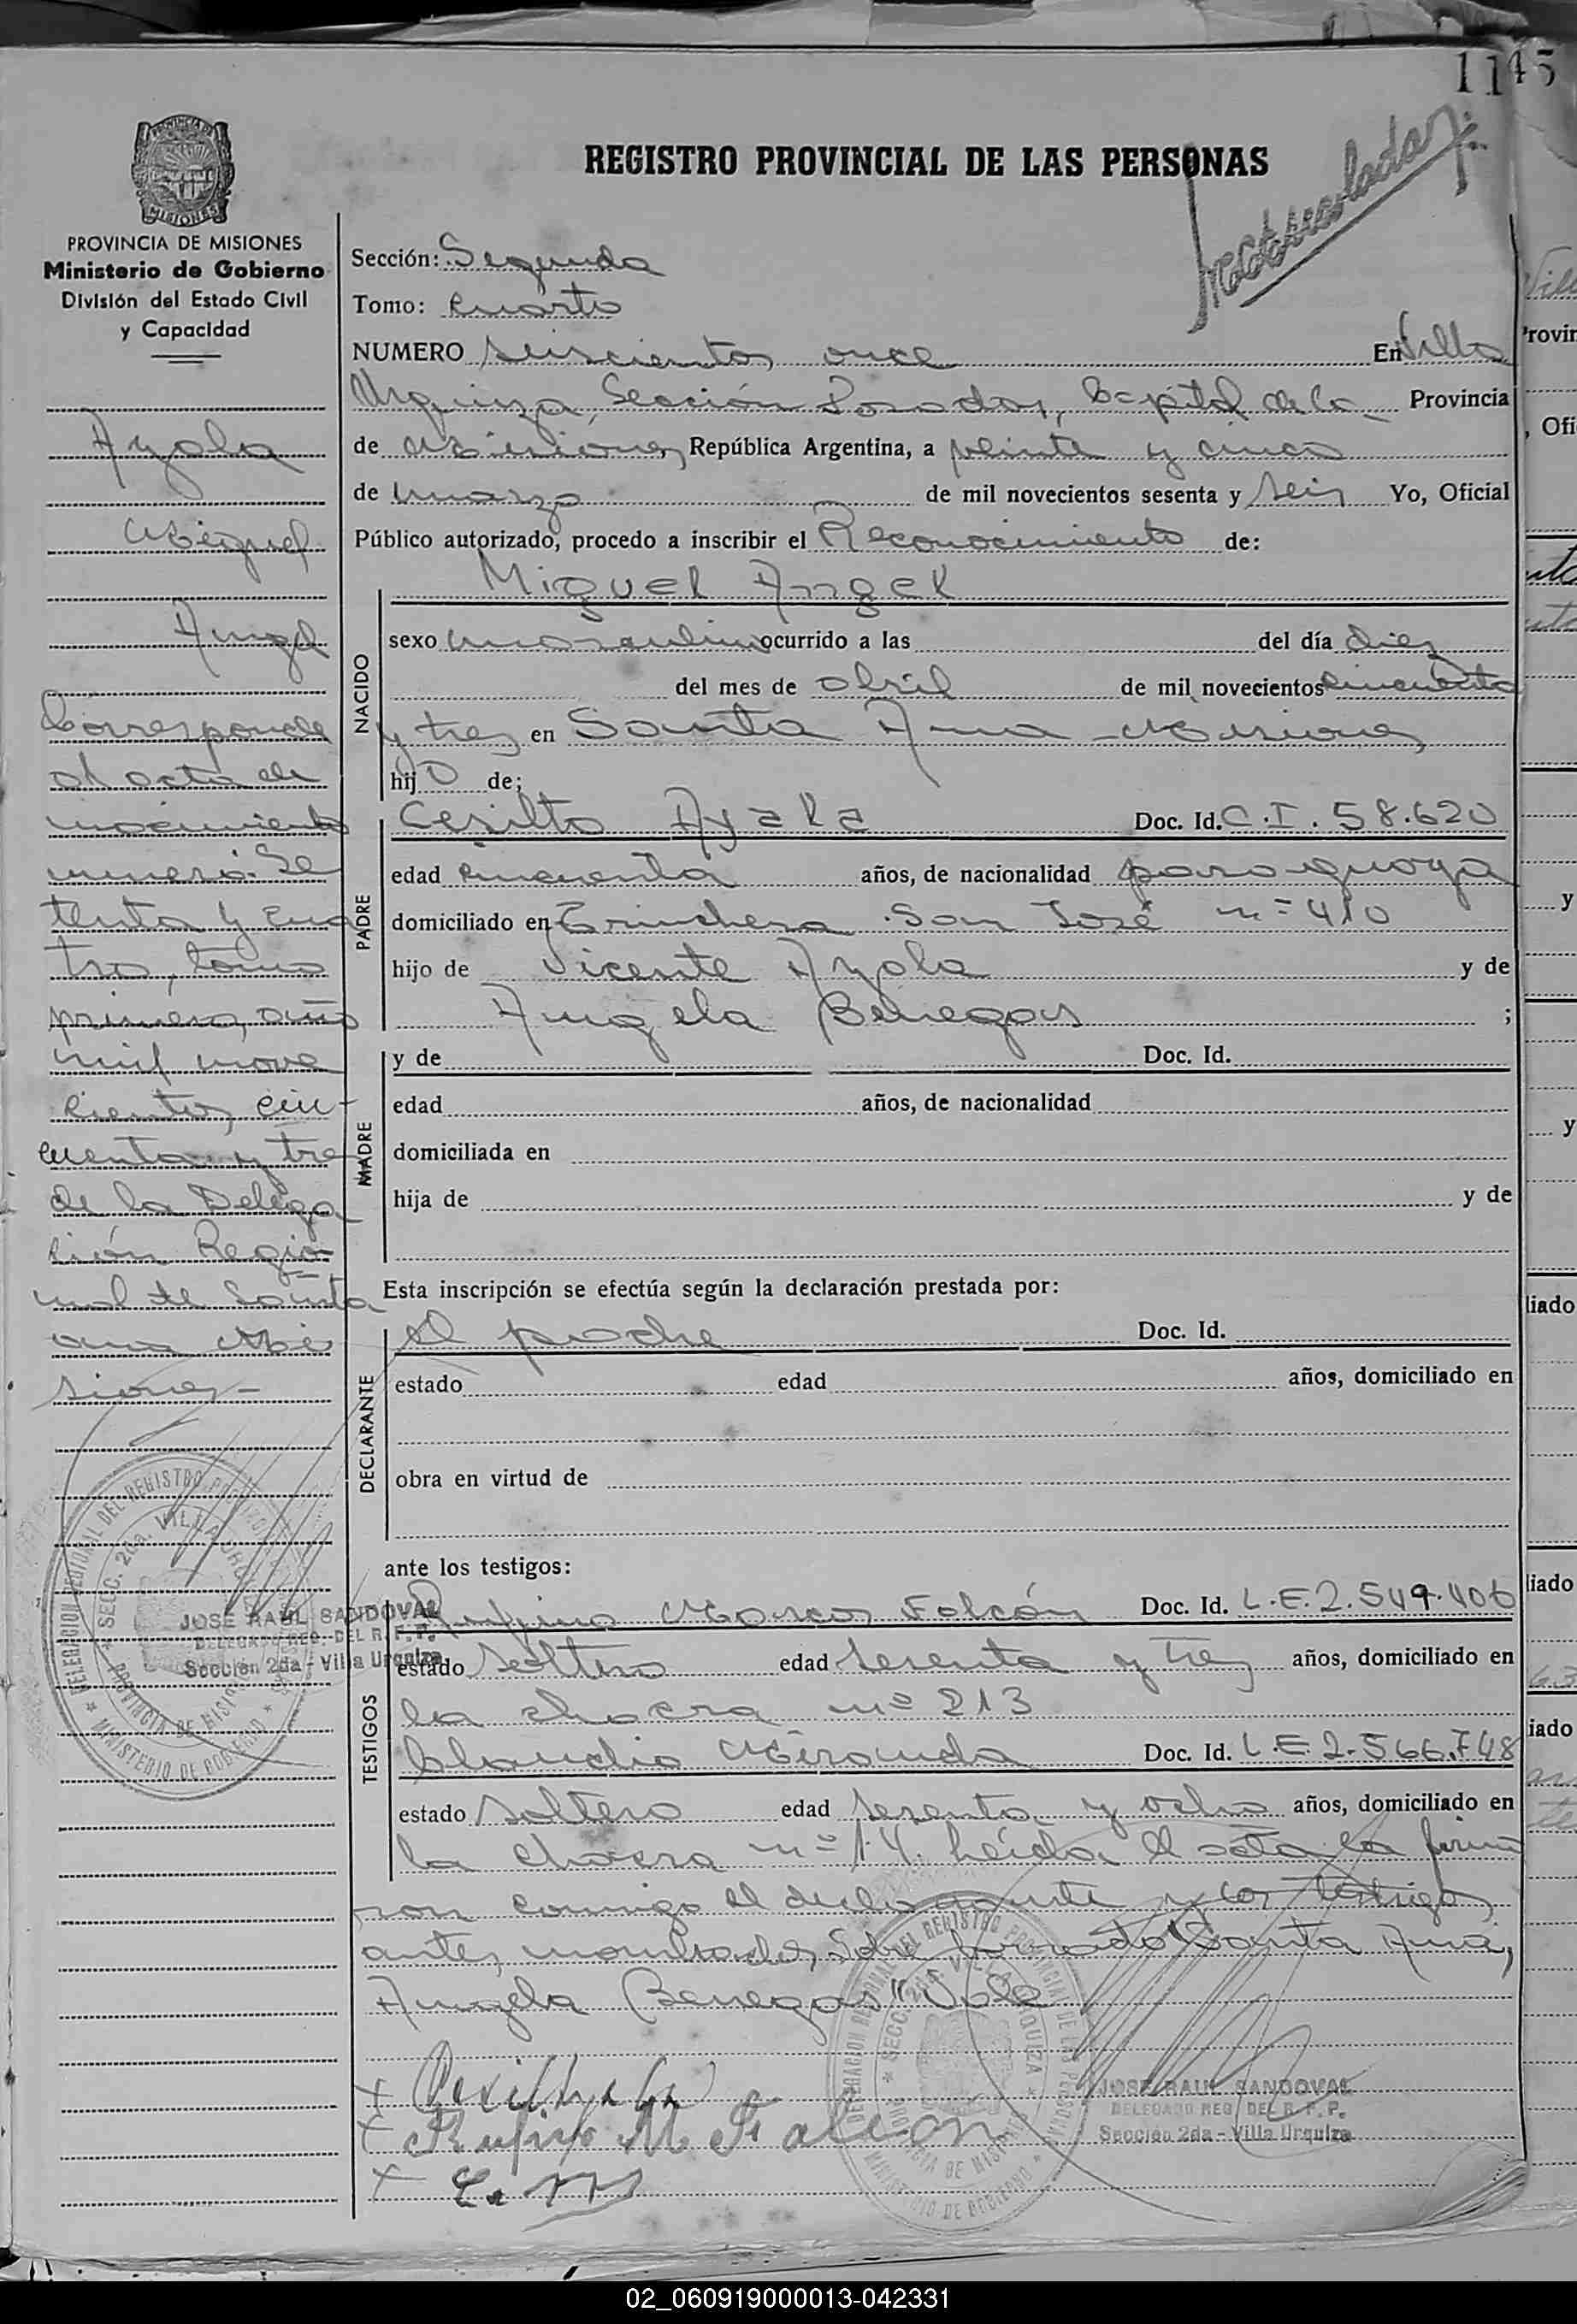 1145
REGISTRO PROVINCIAL DE LAS PERSONAS
PROVINCIA DE MISIONES
Ministerio de Gobierno
División del Estado Civil
y Capacidad
Ayala
Miguel
Angel
Corresponde
al acta de
nacimiento
numero Se
tenta y cua
tro, tomo
primero, año
mil nove
cientos, cin-
cuenta y tre
de la Delega
ción Regio
nal de Santa
ana Mi
siones-
Sección: Segunda
Tomo: Cuarto
NUMERO seiscientos once En Villa
Urquiza, Sección Posadas, Capital de la Provincia
de Misiones, República Argentina, a veinte y cinco
de marzo de mil novecientos sesenta y seis Yo, Oficial
Público autorizado, procedo a inscribir el Reconocimiento de:
NACIDO
Miguel Angel
sexo masculino ocurrido a las del día diez
del mes de abril de mil novecientos cincuenta
y tres en Santa Ana Misiones
hijo de;
PADRE
Cesilto Ayala Doc. Id. C.I. 58.620
edad cincuenta años, de nacionalidad paraguaya
domiciliado en Trinchera San José nº 410
hijo de Vicente Ayala y de
Angela Benegas ;
MADRE
y de Doc. Id.
edad años, de nacionalidad
domiciliada en
hija de y de
Esta inscripción se efectúa según la declaración prestada por:
DECLARANTE
el padre Doc. Id.
estado edad años, domiciliado en
obra en virtud de
ante los testigos:
TESTIGOS
Rufino Marcos Falcón Doc. Id. L.E.2.549.406
estado soltero edad sesenta y tres años, domiciliado en
la chacra nº 213
Claudio Miranda Doc. Id. L.E. 2.566.748
estado soltero edad sesenta y ocho años, domiciliado en
la chacra nº 14. Leída el acta la firma
ron conmigo el declarante y los testigos
antes nombrados, Sobre borrado "Santa Ana,
Angela Benegas" Vale
Rufino M Falcon
C. M
DELEGACION REGIONAL DEL REGISTRO PROVINCIAL DE LAS PERSONAS
SECC. 2da. VILLA URQUIZA
PROVINCIA DE MISIONES
MINISTERIO DE GOBIERNO
JOSE RAUL SANDOVAL
DELEGADO REG. DEL R.P.P.
Sección 2da - Villa Urquiza
JOSE RAUL SANDOVAL
DELEGADO REG. DEL R.P.P.
Sección 2da - Villa Urquiza
02_060919000013-042331